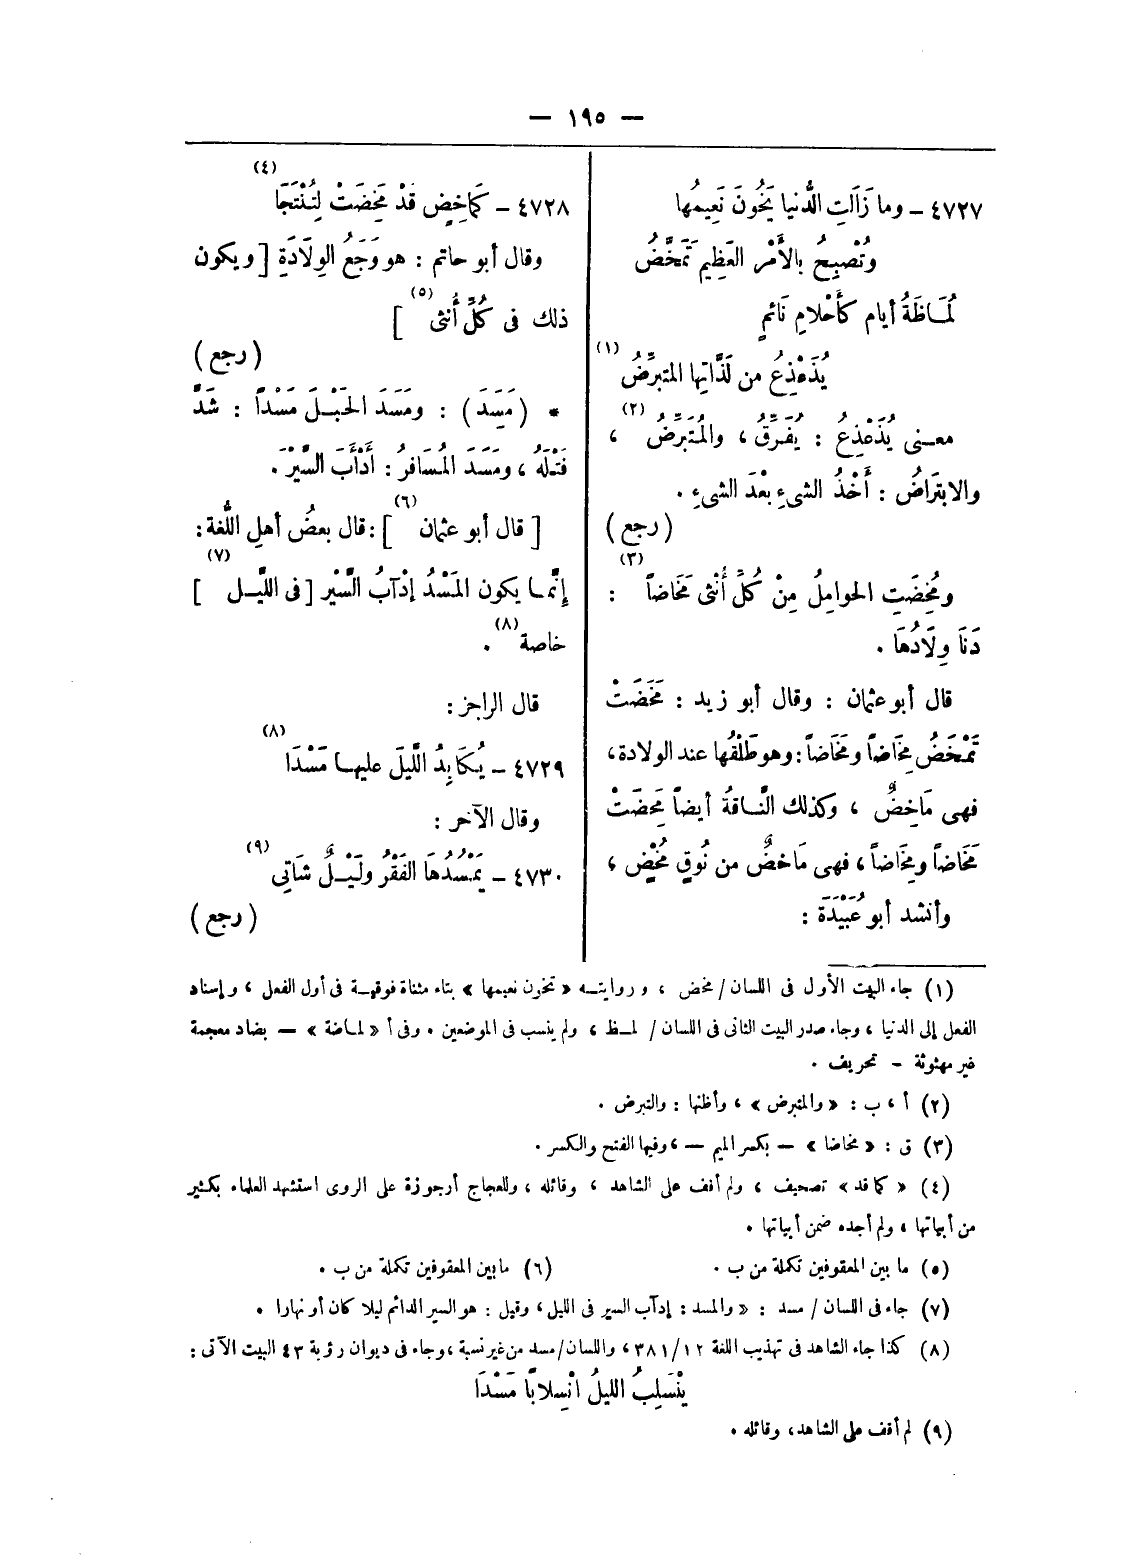 — ١٩٥ —
٤٧٢٧ - وما زَالَتِ الدُّنيا يَخُونَ نَعِيمُها
وتُصْبِحُ بالأَمْر العَظِيمِ تَمَخَّضُ
لُمَاظَةُ أيام كَأَحْلامِ نَائمٍ
يُذَعْذِعُ من لَذَّاتِها المتبرِّضُ (١)
معنى يُذَعْذِعُ : يُفَرِّقُ ، والمُتَبَرِّضُ (٢) ،
والابتِرَاضُ : أَخْذُ الشىءِ بعْدَ الشىءِ .
(رجع)
ومُخِضَتِ الحوامِلُ مِنْ كُلِّ أُنْثى مَخَاضاً (٣) :
دَنَا وِلَادُهَا .
قال أبو عثمان : وقال أبو زيد : مَخَضَتْ
تَمْخَضُ مِخَاضاً ومَخَاضاً : وهو طَلْقُها عند الولادة ،
فهى مَاخِضٌ ، وكذلك النَّاقةُ أيضاً مَخِضَتْ
مَخَاضاً ومِخَاضاً ، فهى مَاخضٌ من نُوقٍ مُخَّضٍ ،
وأنشد أبو عُبَيْدَة :
٤٧٢٨ - كَمَاخِضٍ قَدْ مَخِضَتْ لِتُنْتَجَا (٤)
وقال أبو حاتم : هو وَجَعُ الوِلَادَةِ [ ويكون
ذلك فى كُلِّ أُنثى (٥) ]
(رجع)
* (مَسَدَ) : ومَسَدَ الحَبْـلَ مَسْداً : شَدَّ
فَتْـلَهُ ، ومَسَدَ المُسَافرُ : أَدْأَبَ السَّيْرَ .
[ قال أبو عثمان (٦) ] : قال بعضُ أهلِ اللُّغة :
إِنَّمـا يكون المَسْدُ إِدْآبُ السَّيْرِ [ فى اللَّيـل (٧) ]
خاصة (٨) .
قال الراجز :
٤٧٢٩ - يُكَابِدُ اللَّيلَ عليهـا مَسْدَا (٨)
وقال الآخر :
٤٧٣٠ - يَمْسُدُهَا الفَقْرُ ولَيْـلٌ شَاتِى (٩)
(رجع)
(١) جاء البيت الأول فى اللسان / مخض ، وروايتـه « تخون نعيمها » بتاء مثناة فوقيـة فى أول الفعل ، وإسناد
الفعل إلى الدنيا ، وجاء صدر البيت الثانى فى اللسان / لمـظ ، ولم ينسب فى الموضعين . وفى أ « لماضة » — بضاد معجمة
غير مهثوثة - تحريف .
(٢) أ ، ب : « والمتبرض » ، وأظنها : والتبرض .
(٣) ق : « مخاضا » — بكسر الميم — ، وفيها الفتح والكسر .
(٤) « كما قد » تصحيف ، ولم أقف على الشاهد ، وقائله ، وللعجاج أرجوزة على الروى استشهد العلماء بكثير
من أبياتها ، ولم أجده ضمن أبياتها .
(٥) ما بين المعقوفين تكملة من ب . (٦) مابين المعقوفين تكملة من ب .
(٧) جاء فى اللسان / مسد : « والمسد : إدآب السير فى الليل ، وقيل : هو السير الدائم ليلا كان أو نهارا .
(٨) كذا جاء الشاهد فى تهذيب اللغة ٣٨١/١٢ ، واللسان/مسد من غير نسبة ، وجاء فى ديوان رؤبة ٤٣ البيت الآتى :
يَنْسَلِبُ الليلُ انْسِلابًا مَسْدَا
(٩) لم أقف على الشاهد ، وقائله .